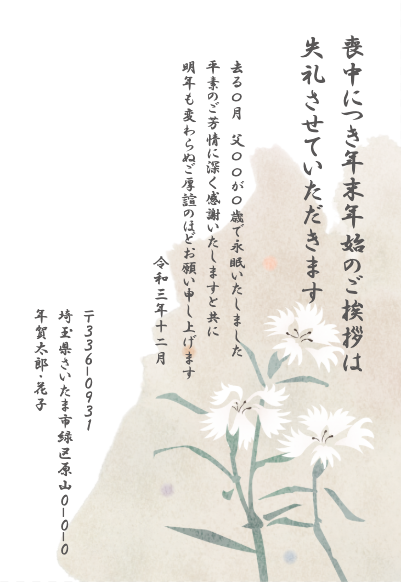 喪中につき年末年始のご挨拶は
失礼させていただきます
去る〇月　父〇〇が〇歳で永眠いたしました
平素のご芳情に深く感謝いたしますと共に
明年も変わらぬご厚誼のほどお願い申し上げます
令和三年十二月
〒336-0931
埼玉県さいたま市緑区原山0-0-0
年賀太郎・花子